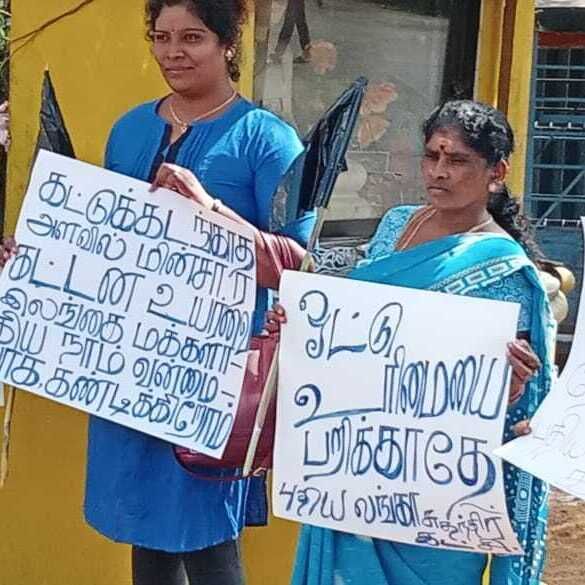 கட்டுக்கடங்காத
அளவில் மின்சார
கட்டண உயர்வை
இலங்கை மக்களா-
கிய நாம் வன்மை-
யாக கண்டிக்கிறோம்
ஓட்டு
ரிமையை
பறிக்காதே
புதிய லங்கா சுதந்திர